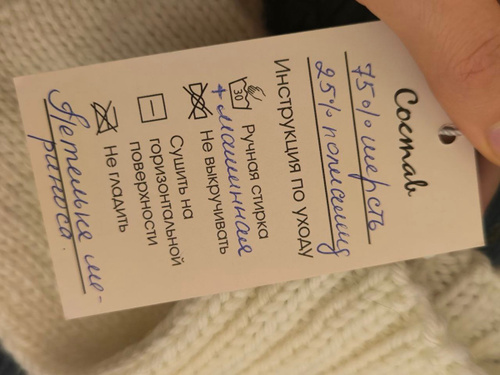 Состав
75% шерсть
25% полиамид
Инструкция по уходу
30
Ручная стирка
+ машинная
Не выкручивать
Сушить на
горизонтальной
поверхности
Не гладить
ме-
риноса.